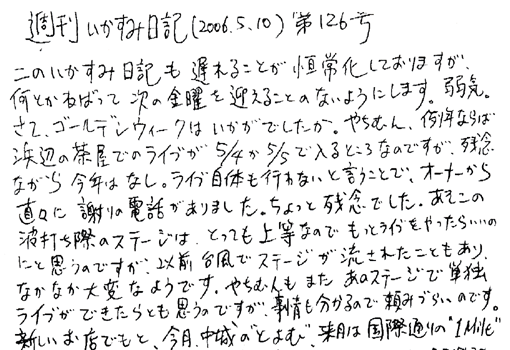 週刊 いかすみ日記(2006.5.10) 第126号
このいかすみ日記も遅れることが恒常化しておりますが、
何とかねばって次の金曜を迎えることのないようにします。弱気。
さて、ゴールデンウィークはいかがでしたか。やちむん、例年ならば
浜辺の茶屋でのライブが5/4か5/5で入るところなのですが、残念
ながら今年はなし。ライブ自体も行わないと言うことで、オーナーから
直々に謝りの電話がありました。ちょっと残念でした。あそこの
波打ち際のステージは、とっても上等なのでもっとライブをやったらいいの
にと思うのですが、以前台風でステージが流されたこともあり、
なかなか大変なようです。やちむんもまたあのステージで単独
ライブができたらとも思うのですが、事情も分かるので頼みづらいのです。
新しいお店でもと、今月、中城の"とよむ"、来月は国際通りの"1 Mile"